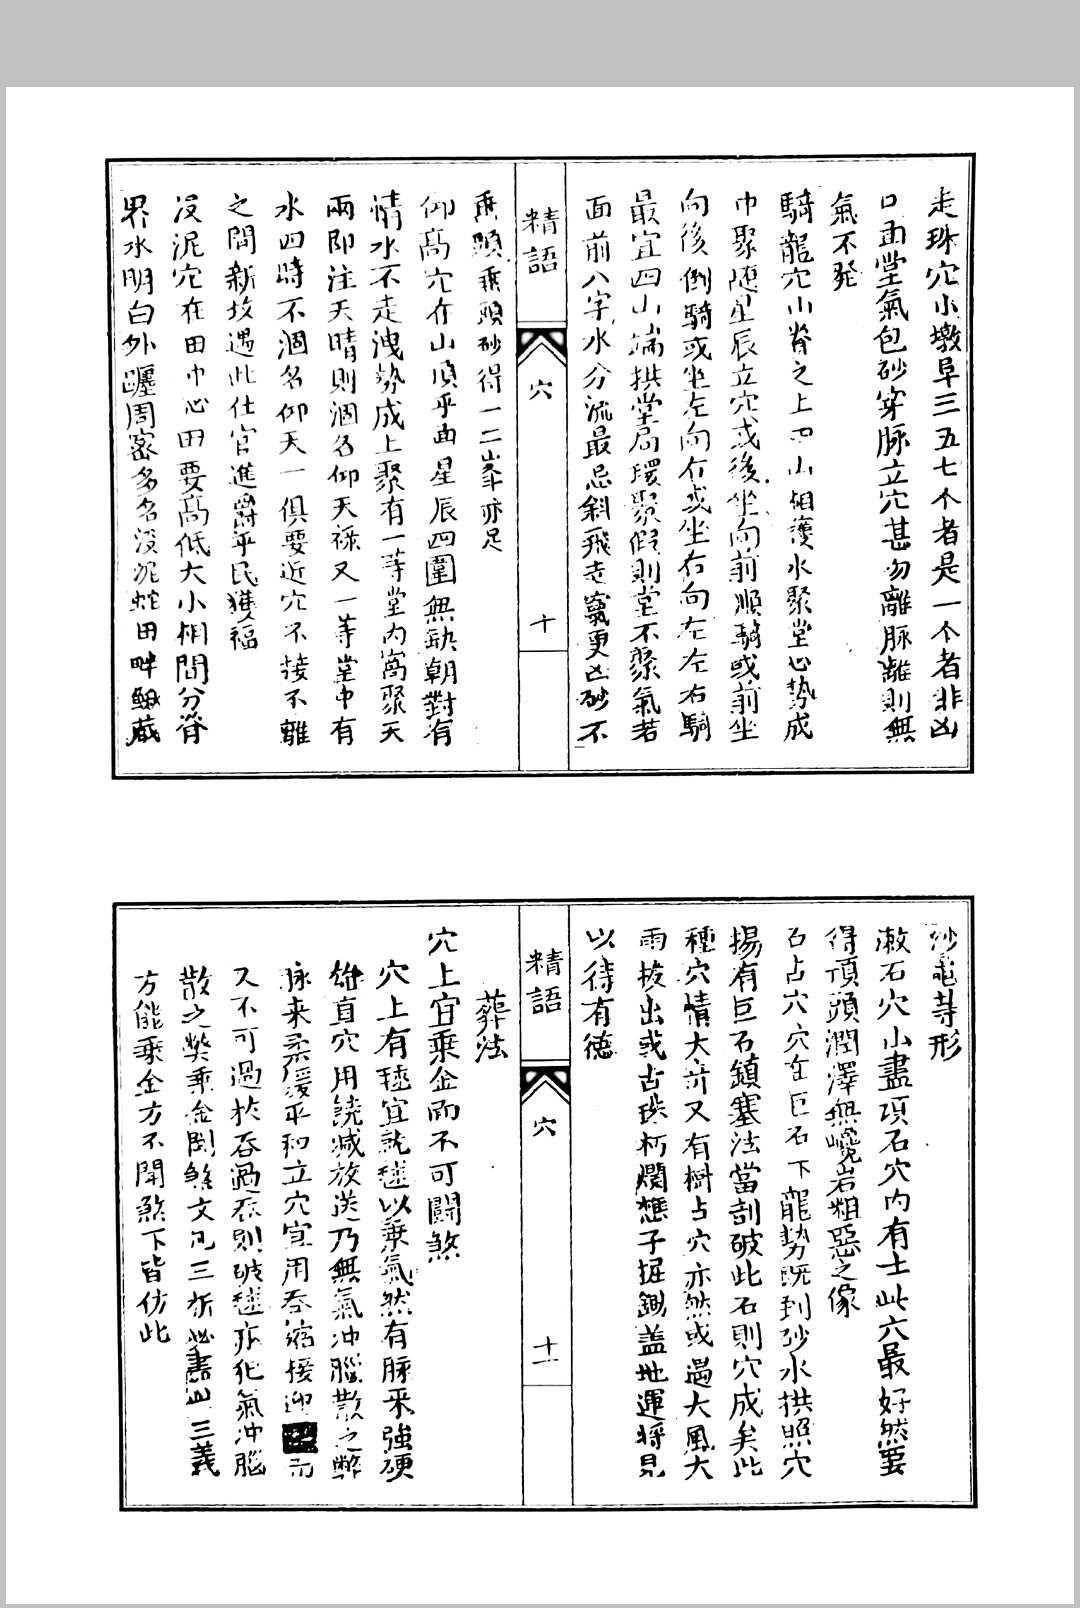 走珠穴小墩阜三五七个者是一个者非凶
口面堂氣包砂穿脉立穴甚勿離脉離則無
氣不発
騎龍穴小脊之上四山相護水聚堂心勢成
巾聚随星辰立穴或後坐向前順騎或前坐
向後倒騎或坐左向右或坐右向左左右騎
最宜四山端拱堂局環聚假則堂不聚氣若
面前八字水分流最忌斜飛走竄更凶砂不
精語
穴
十
乘頭乘頭砂得一二峯亦足
仰高穴在山頂平面星辰四圍無缺朝對有
情水不走洩勢成上聚有一等堂内窩聚天
雨即注天晴則涸名仰天禄又一等堂中有
水四時不涸名仰天一俱要近穴不接不離
之間新坟遇此仕官進爵平民獲福
没泥穴在田中心田要高低大小相間分脊
界水明白外纒周密多名没泥蛇田畔藏
沙等形
漱石穴小盡項石穴内有土此穴最好然要
得頂頭潤澤無巉岩粗惡之像
石占穴穴在巨石下龍勢既到砂水拱照穴
揚有巨石鎮塞法當剖破此石則穴成矣此
種穴情大奇又有樹占穴亦然或過大風大
雨拔出或古朽爛應子掘鋤盖地運将見
以待有德
精語
穴
十一
葬法
穴上宜乘金而不可鬪煞
穴上有毬宜就毬以乘氣然有脉来強硬
雄直穴用饒减放送乃無氣冲腦散之弊
脉来柔緩平和立穴宜用吞縮接迎而
又不可過於吞過吞則破毬亦化氣冲腦
散之弊乘金鬪煞文凡三析必書此三義
方能乘金方不鬪煞下皆仿此